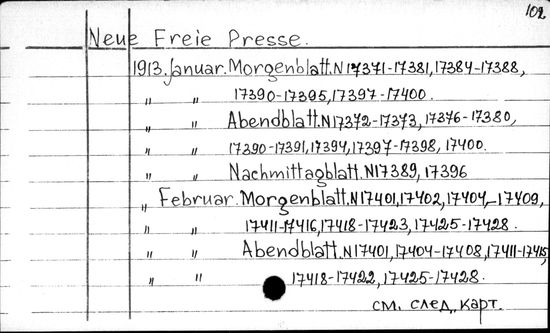 102
Neue Freie Presse.
1913. Januar. Morgenblatt. N 17371-17381, 17384-17388,
" " 17390-17395, 17397-17400.
" " Abendblatt. N 17372-17373, 17376-17380,
" " 17390-17391, 17394, 17397-17398, 17400.
" " Nachmittagblatt. N 17389, 17396
" Februar. Morgenblatt. N 17401, 17402, 17404-17409,
" " 17411-17416, 17418-17423, 17425-17428.
" " Abendblatt. N 17401, 17404-17408, 17411-17415,
" " 17418-17422, 17425-17428.
см. след. карт.